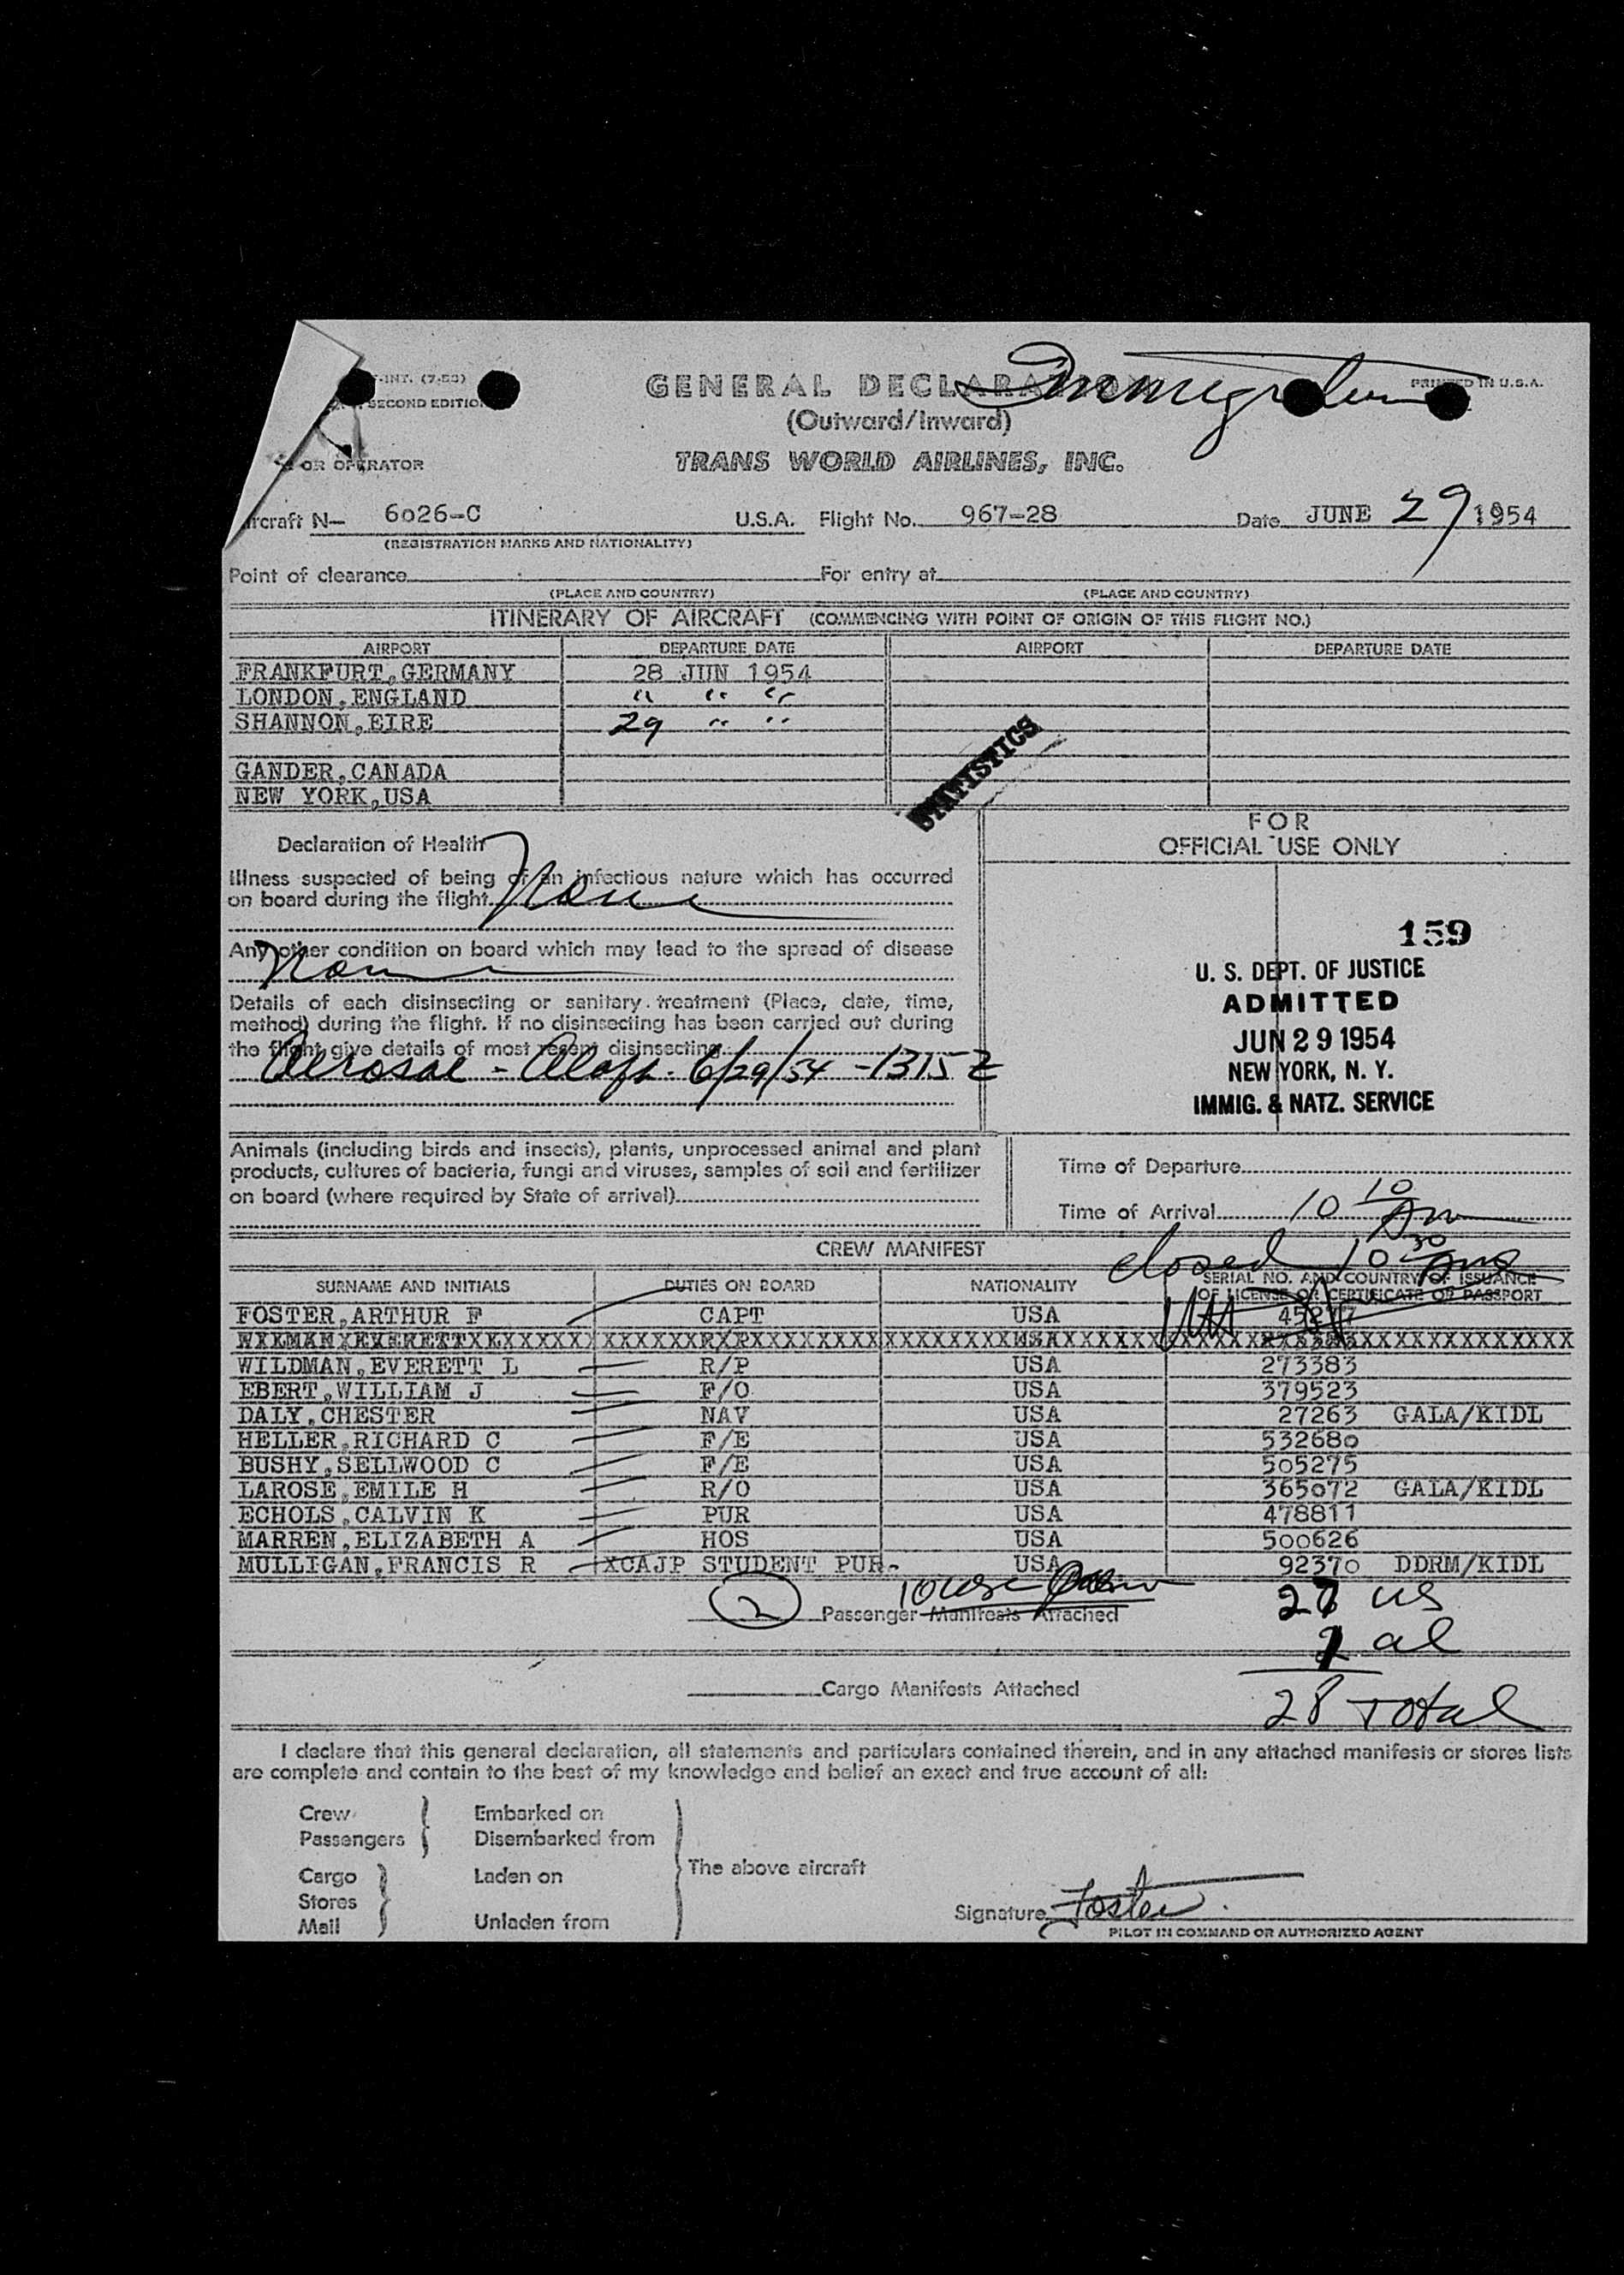 -INT. (7-53)
SECOND EDITION
GENERAL DECLARATION
Immigration
PRINTED IN U.S.A.
(Outward/Inward)
OR OPERATOR
TRANS WORLD AIRLINES, INC.
ircraft N— 6026-C U.S.A. Flight No. 967-28 Date JUNE 29 1954
(REGISTRATION MARKS AND NATIONALITY)
Point of clearance For entry at
(PLACE AND COUNTRY) (PLACE AND COUNTRY)
ITINERARY OF AIRCRAFT (COMMENCING WITH POINT OF ORIGIN OF THIS FLIGHT NO.)
AIRPORT DEPARTURE DATE AIRPORT DEPARTURE DATE
FRANKFURT,GERMANY 28 JUN 1954
LONDON,ENGLAND " " "
SHANNON,EIRE 29 " "
GANDER,CANADA
NEW YORK,USA
STATISTICS
Declaration of Health
Illness suspected of being of an infectious nature which has occurred
on board during the flight None
Any other condition on board which may lead to the spread of disease
None
Details of each disinsecting or sanitary treatment (Place, date, time,
method) during the flight. If no disinsecting has been carried out during
the flight give details of most recent disinsecting
Aerosol - Aloft. 6/29/54 - 1315 Z
FOR
OFFICIAL USE ONLY
159
U. S. DEPT. OF JUSTICE
ADMITTED
JUN 29 1954
NEW YORK, N. Y.
IMMIG. & NATZ. SERVICE
Animals (including birds and insects), plants, unprocessed animal and plant
products, cultures of bacteria, fungi and viruses, samples of soil and fertilizer
on board (where required by State of arrival)
Time of Departure
Time of Arrival 10 10 Am
closed 10 30 Am
CREW MANIFEST
SURNAME AND INITIALS DUTIES ON BOARD NATIONALITY SERIAL NO. AND COUNTRY OF ISSUANCE
OF LICENSE OR CERTIFICATE OR PASSPORT
FOSTER,ARTHUR F CAPT USA
WILDMAN,EVERETT L R/P USA 273383
EBERT,WILLIAM J F/O USA 379523
DALY,CHESTER NAV USA 27263 GALA/KIDL
HELLER,RICHARD C F/E USA 532680
BUSHY,SELLWOOD C F/E USA 505275
LAROSE,EMILE H R/O USA 365072 GALA/KIDL
ECHOLS,CALVIN K PUR USA 478811
MARREN,ELIZABETH A HOS USA 500626
MULLIGAN,FRANCIS R XCAJP STUDENT PUR- USA 92370 DDRM/KIDL
2 Passenger Manifests Attached
27 us
1 al
28 Total
Cargo Manifests Attached
I declare that this general declaration, all statements and particulars contained therein, and in any attached manifests or stores lists
are complete and contain to the best of my knowledge and belief an exact and true account of all:
Crew Embarked on
Passengers Disembarked from
Cargo Laden on
Stores
Mail Unladen from
The above aircraft
Signature Foster
PILOT IN COMMAND OR AUTHORIZED AGENT